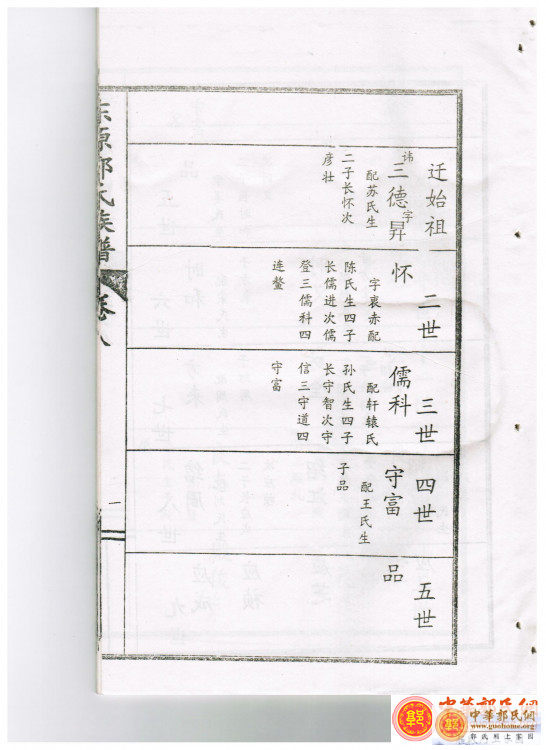 迁始祖
讳三德字昇
配苏氏生
二子长怀次
彦壮
二世
怀
字衷赤配
陈氏生四子
长儒进次儒
登三儒科四
连鳌
三世
儒科
配轩辕氏
孙氏生四子
长守智次守
信三守道四
守富
四世
守富
配王氏生
子品
五世
品
原郭氏族谱
卷八
一
中華郭氏網
www.guohome.org
郭氏网上家园